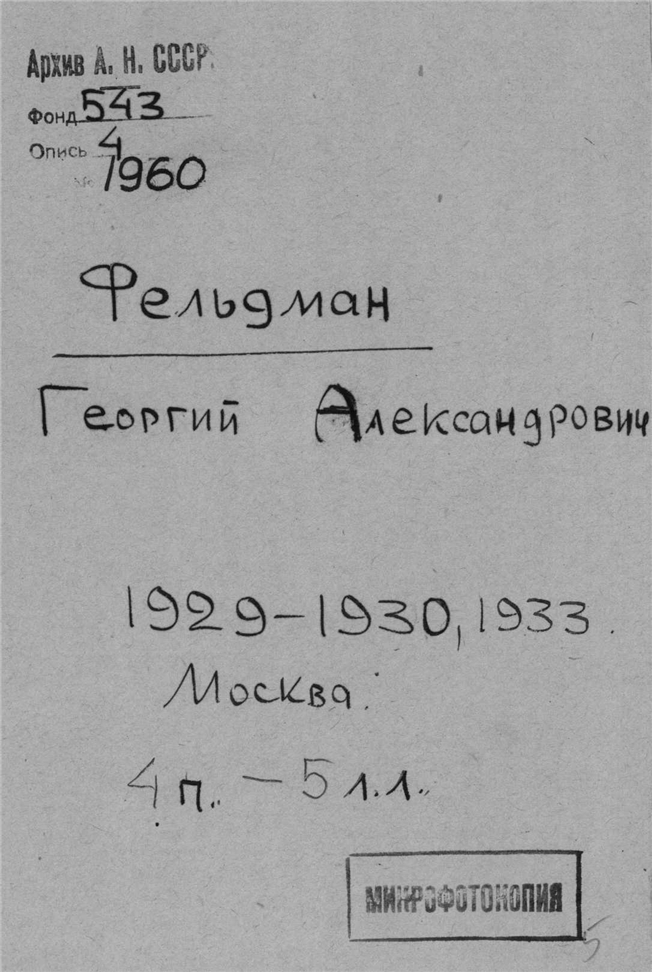 Архив А. Н. СССР.
Фонд 543
Опись 4
№ 1960
Фельдман
Георгий Александрович
1929-1930, 1933.
Москва.
4 п. - 5 л.л.
МИКРОФОТОКОПИЯ
5